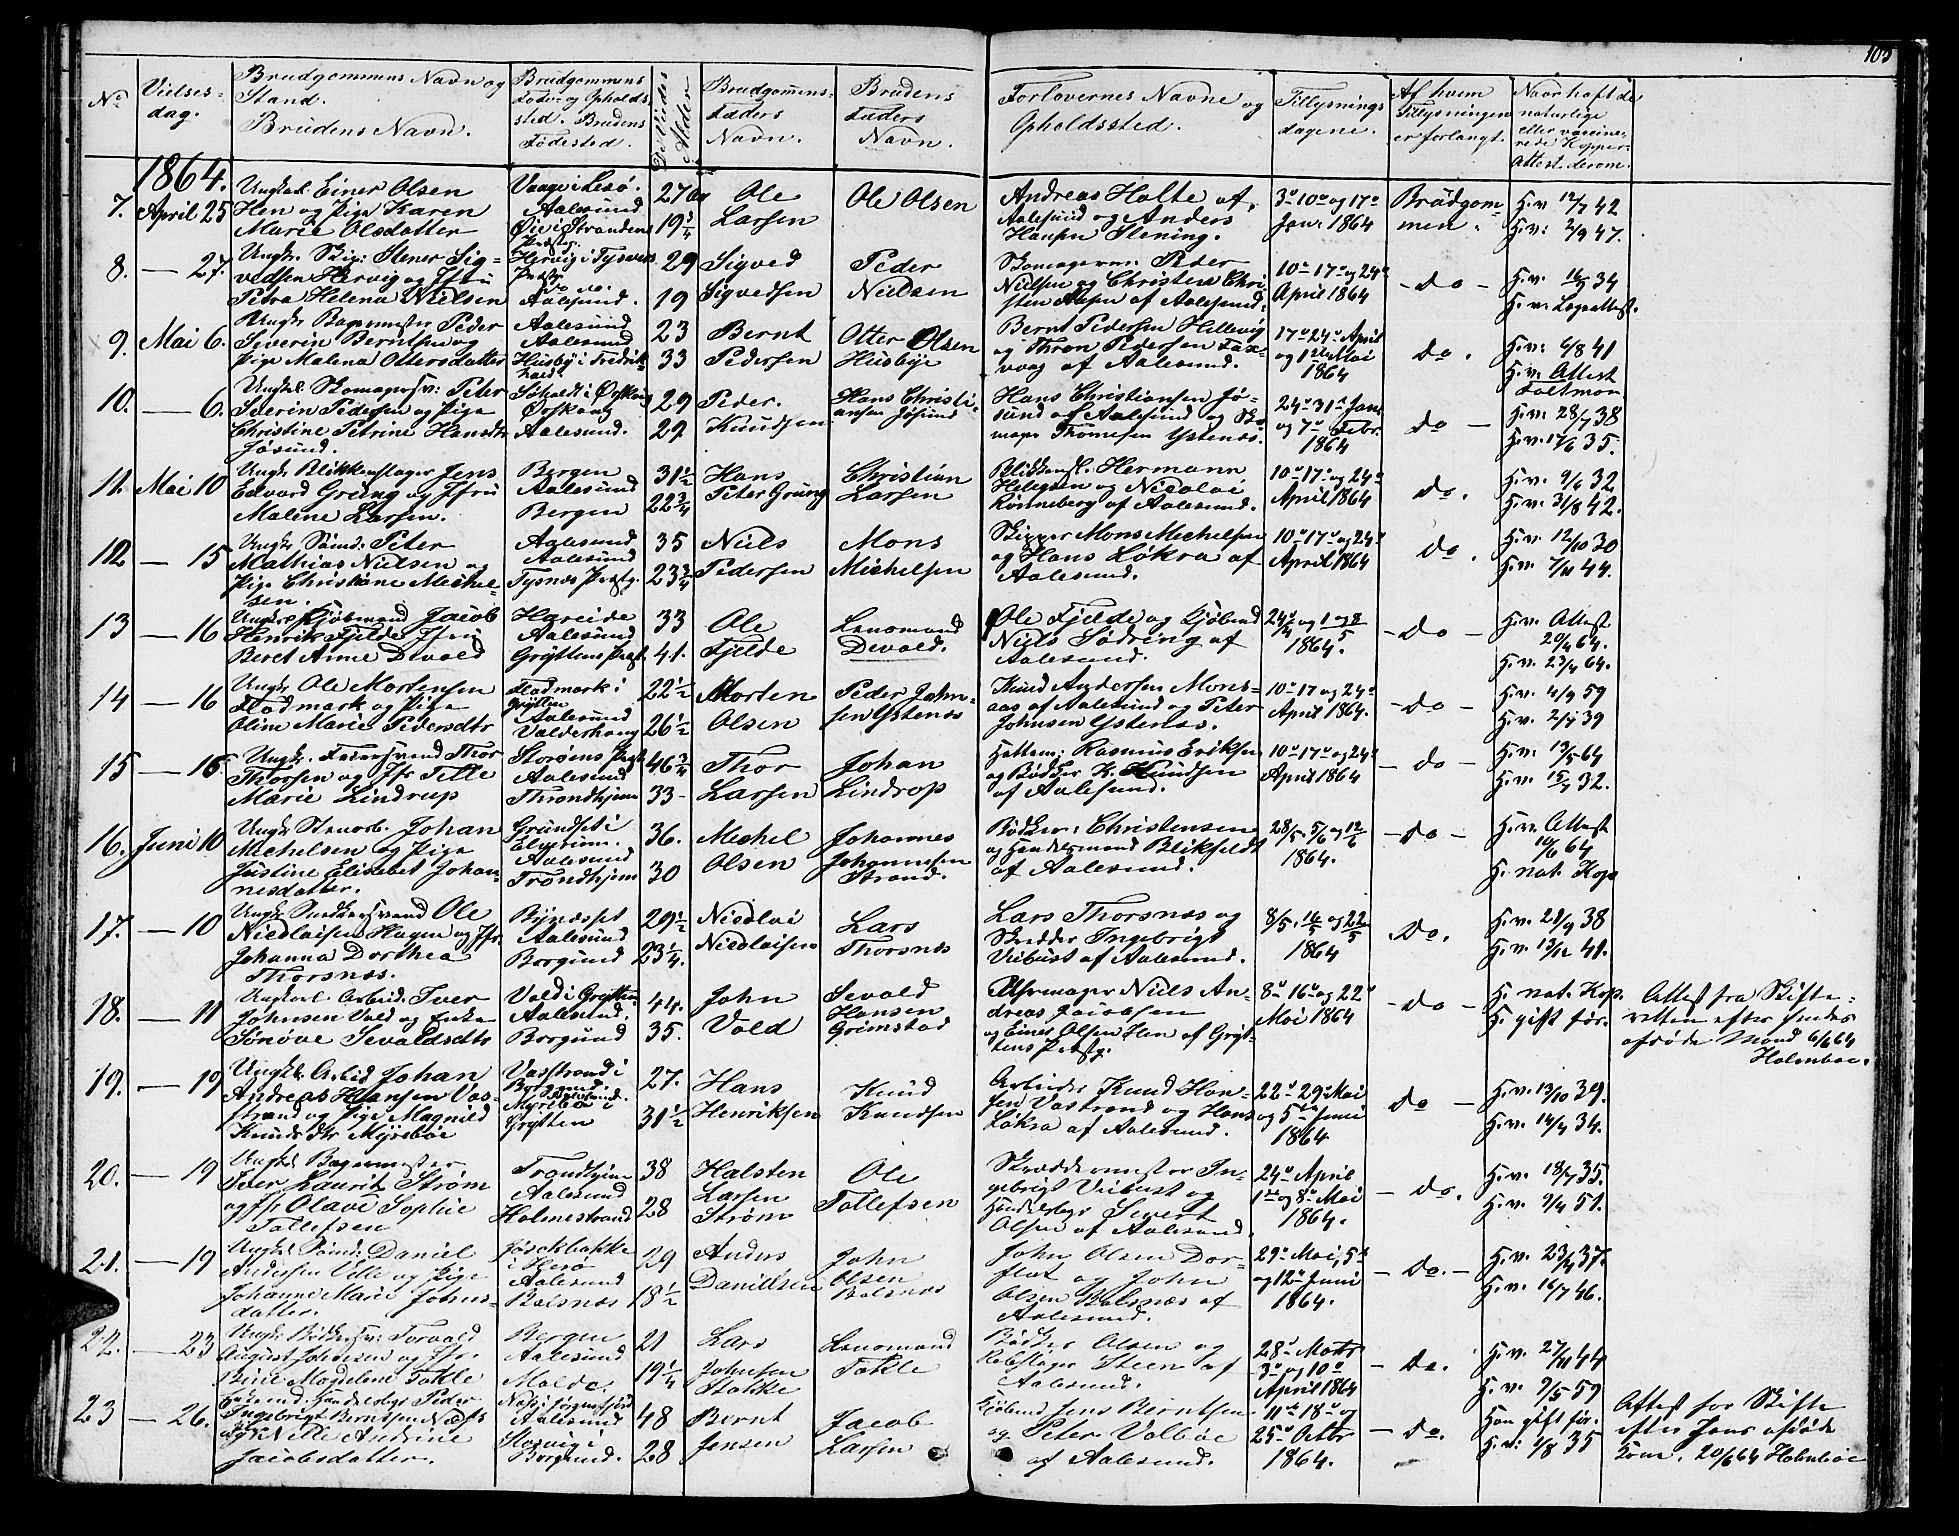 103
No
Vielses-dag.
Brudgommens Navn og Stand. Brudens Navn.
Brudgommens Føde- og Opholdssted. Brudens Fødested.
De Viedes Alder
Brudgommens Faders Navn.
Brudens Faders Navn.
Forlovernes Navne og Opholdssted.
Tillysnings dagene.
Af hvem Tillysningen er forlangt.
Naar haft de naturlige eller vaccinerede Kopper. Attest derom.
1864.
7. April 25
Ungkarl Einer Olsen
Hen og Pige Karen
Marie Olsdatter
Vaage i Lesø.
Aalesund
Øie i Strandens Præstg.
27
19 3/4
Ole Larsen
Ole Olsen
Andreas Holte af
Aalesund og Anders
Hansen Slening.
3die 10de og 17de
Janr 1864
Brudgommen.
H. v. 12/7 42
H. v. 2/9 47.
8. — 27.
Stener Sigvedsen Hervig og Jfru
Petra Helena Nielsen
Hervig i Tysvær
Aalesund.
29
19
Sigved Sigvedsen
Peder Nielsen
Skomagerm: Peder
Nielsen og Christen Christensen af Aalesund.
10de 17de og 24de
April 1864
— do —
H. v. 34
H. v. Lægeattest.
9. Mai 6.
Ungk: Bagermester Peder
Severin Berntsen og
Pige Malena Ottersdatter
Aalesund
Aalesund
Husby i Fredrik
23
33
Bernt Pedersen
Otter Olsen Husbye
Bernt Pedersen Hellevig
og Thron Pedersen
af Aalesund.
17de 24de April
og 1ste Mai
1864
do.
H. v. 6/8 41
H. v. Attest
10. — 6.
Ungkl. Skomagersv: Peter
Severin Pedersen og Pige
Christine Petrine Hansdtr
Jøsund.
Sjøholt i Ørskoug
Ørskoug
Aalesund.
29
29
Peder Knudsen
Hans Christiansen Jøsund
Hans Christiansen Jøsund af Aalesund og
Thomesen Ystenæs.
24de 31te Janr
og 7de Febr.
1864
do —
H. v. 28/7 38
H. v. 17/6 35.
11. Mai 10
Ungk: Blikkenslager Jens
Edvard Grung og Jfru
Malene Larsen.
Bergen
Aalesund
Bergen
31 1/2
22 3/4
Hans Peter Grung
Christian Larsen
Blikkensl. Hermann
Helgesen og Nicolai
Rønneberg af Aalesund.
10de 17de og 24de
April 1864
do.
H. v. 9/6 32
H. v. 31/8 42.
12 — 15
Ungk: Sømd: Peter
Mathias Nielsen og
Pige Christine Michelsen.
Aalesund
Aalesund
Tysnæs Præstg.
35
23 3/4
Niels Pedersen
Mons Michelsen
Skipper Mons Michelsen
og Hans Løkra af
Aalesund.
10de 17de og 24de
April 1864
do.
H. v. 12/10 30
H. v. 7/11 44.
13 — 16
Ungk: Kjøbmand Jacob
Henrik Fjelde Jfru
Beret Anne Devold
Hareide
Aalesund
Gryttens Præst.
33
41.
Ole Fjelde
Lensmand Devold.
Ole Fjelde og Kjøbmd
Niels Sødring af
Aalesund.
24/4 og 1 og 8/5
1864.
— do —
H. v. Attest
20/4 64.
H. v. 23/4 64.
14 — 16
Ungk: Ole Mortensen
Fladmark og Pige
Oline Marie Pedersdtr
Fladmark i
Grytten
Aalesund
Valderhoug
22 1/2
26 1/2
Morten Olsen
Peder Johnsen Ystenæs
Knud Andersen Monsaas af Aalesund og Peter
Johnsen Ystenæs.
10de 17 og 24de
April 1864.
— do —
H. v. 4/9 59
H. v. 39
15 — 16
Thor
Thorsen og Jfr Sille
Marie Lindrup
Storøens Præst
Aalesund
Throndhjem
46 3/4
33
Thor Larsen
Johan Lindrop
Hattem: Rasmus Eriksen
og Bødker K. Knudsen
af Aalesund.
10de 17de og 24de
April 1864
— do —
H. v. 13/5 64
H. v. 15/7 32.
16. Juni 10
Ungk: Johan
Michelsen og Pige
Justine Elisabet Johannesdatter.
Grundset i
Elverum.
Aalesund
Trondhjem
36.
30
Michel Olsen
Johannes Johannesen Strand.
Bødker: Christensen
og Handelsmand Blikfeldt
af Aalesund.
28/5 5/6 og 12/6
1864.
— do —
H. v. Attest
10/6 64
H. nat. Kop
17. — 10
Ungk: Snedkersvend Ole
Nicolaisen Hagen og Jfr.
Johanna Dorthea
Thorsnæs.
Bynæsset
Aalesund
Borgund
29 1/2
23 1/4.
Nicolai Nicolaisen
Lars Thorsnæs
Lars Thorsnæs og
Skredder Ingebrigt
Viibust af Aalesund.
8/5. og 22/5
1864
Do.
H. v. 29/9 38
H. v. 13/12 41.
18. — 11
Ungkarl Arbeid: Iver
Johnsen Vold og Enke
Sønøve Sevaldsdtr
Vold i Grytten
Aalesund.
Borgund
44.
35.
John Vold
Sevald Hansen Grimstad
Uhrmager Niels Andreas
og Einer Olsen Hen af Gryttens Præstg.
8de 16de og 22de
Mai 1864
— do —
H. nat. Kop.
H. gift før.
Attest fra Skifte-
retten efter hendes
afdøde Mand 6/6 64
Holmboe.
19. — 19
Ungk: Arbeid Johan
Andreas Hansen Vasstrand og Pige Magnild
Knudsdtr Myrebøe
Vasstrand i
Borgund.
Aalesund.
Myrebøe i
Grytten
27.
31 1/2
Hans Henriksen
Knud Knudsen
Arbeider Knud Hansen Vastrand og Hans
Løkra af Aalesund.
22de 29de Mai
og 5te Juni
1864
do —
H. v. 13/10 39.
H. v. 14/9 34.
20. — 19
Ungkl Bagermester
Iver Laurits Strøm
og Jfr Olave Sophie
Tollefsen
Trondhjem
Aalesund
Holmestrand
38
28
Halsten Larsen Strøm
Ole Tollefsen
Skræddermester Ingebrigt Viibust og
Sivert
Olsen af Aalesund.
24de April
1ste og 8de Mai
1864.
— do.
H. v. 18/7 35.
H. v. 9/4 51.
21. — 19
Ungkl Sømd: Daniel
Andersen Ulle og Pige
Johanne Marie Johnsdatter.
i Herø
Aalesund
Balsnæs
29
18 1/2
Anders Danielsen
John Olsen Balsnæs
John Olsen
og John
Olsen Balsnæs af
Aalesund.
29de Mai, 5te
og 12te Juni
1864.
— do. —
H. v. 23/9 37.
H. v. 16/7 46.
22. — 23
Ungk: Bødkersv: Torvald
August Johnsen og Jfr.
Magdelene Takle
Bergen
Aalesund
Molde.
21
19 1/4
Lars Johnsen Stokke
Lensmand Takle
Bødker Olsen og
Rebslager Steen af
Aalesund.
28de Marts
3de og 10de
April 1864
— do.
H. v. 27/11 44
H. v. 9/5 59
23 — 26.
Peder
Ingebrigt Berntsen
Andrine
Jacobsdatter.
Aalesund
Borgund.
48
28
Bernt Jensen
Jacob Larsen
Kjøbmd Jens Berntsen
og Peter Volbøe
af Aalesund.
11te 18de og
25de Octbr
1864.
— do.
Han gift før.
H. v: 2/8 35
Attest for Skifte
efter hans afdøde
Kone. 20/6 64 Holmboe